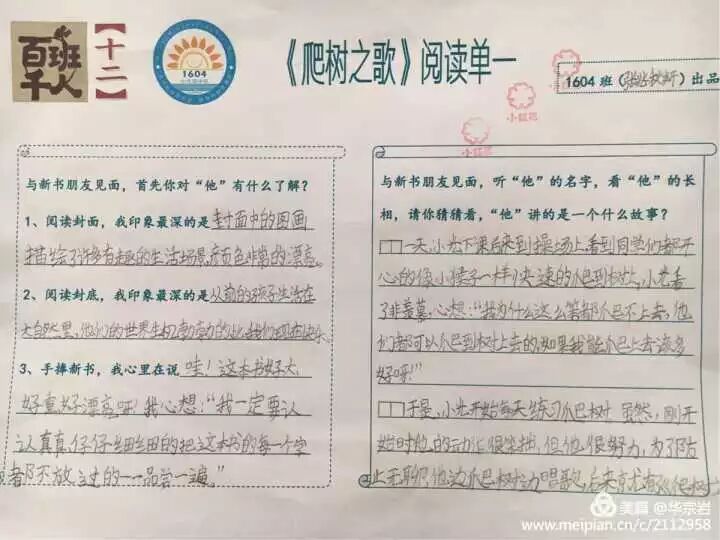 百班千人
【十二】
1604
《爬树之歌》阅读单一
小红花
小红花
1604 班（）出品
与新书朋友见面，首先你对“他”有什么了解？
1、阅读封面，我印象最深的是封面中的图画
描绘了许多有趣的生活场景，颜色非常的漂亮。
2、阅读封底，我印象最深的是从前的孩子生活在
大自然里，他们的世界生机勃勃的比我们现在快乐
3、手捧新书，我心里在说哇！这本书好大，
好重，好漂亮呀！我心想：“我一定要认
认真真，仔仔细细的把这本书的每一个字
都不放过的一一品尝一遍。”
与新书朋友见面，听“他”的名字，看“他”的长
相，请你猜猜看，“他”讲的是一个什么故事？
一天，小光下课后来到操场上，看到同学们都开
心的像小猴子一样快速的爬到树上，小光看
了非羡慕，心想：“我为什么这么笨都爬不上去，他
们都可以爬到树上去的，如果我能爬上去该多
好呀！”
于是，小光开始每天练习爬树，虽然，刚开
始时他的动作很笨拙，但他很努力，为了防
止无聊，他边爬树边唱歌，后来就有爬树
美篇 @华宗岩
www.meipian.cn/c/2112958